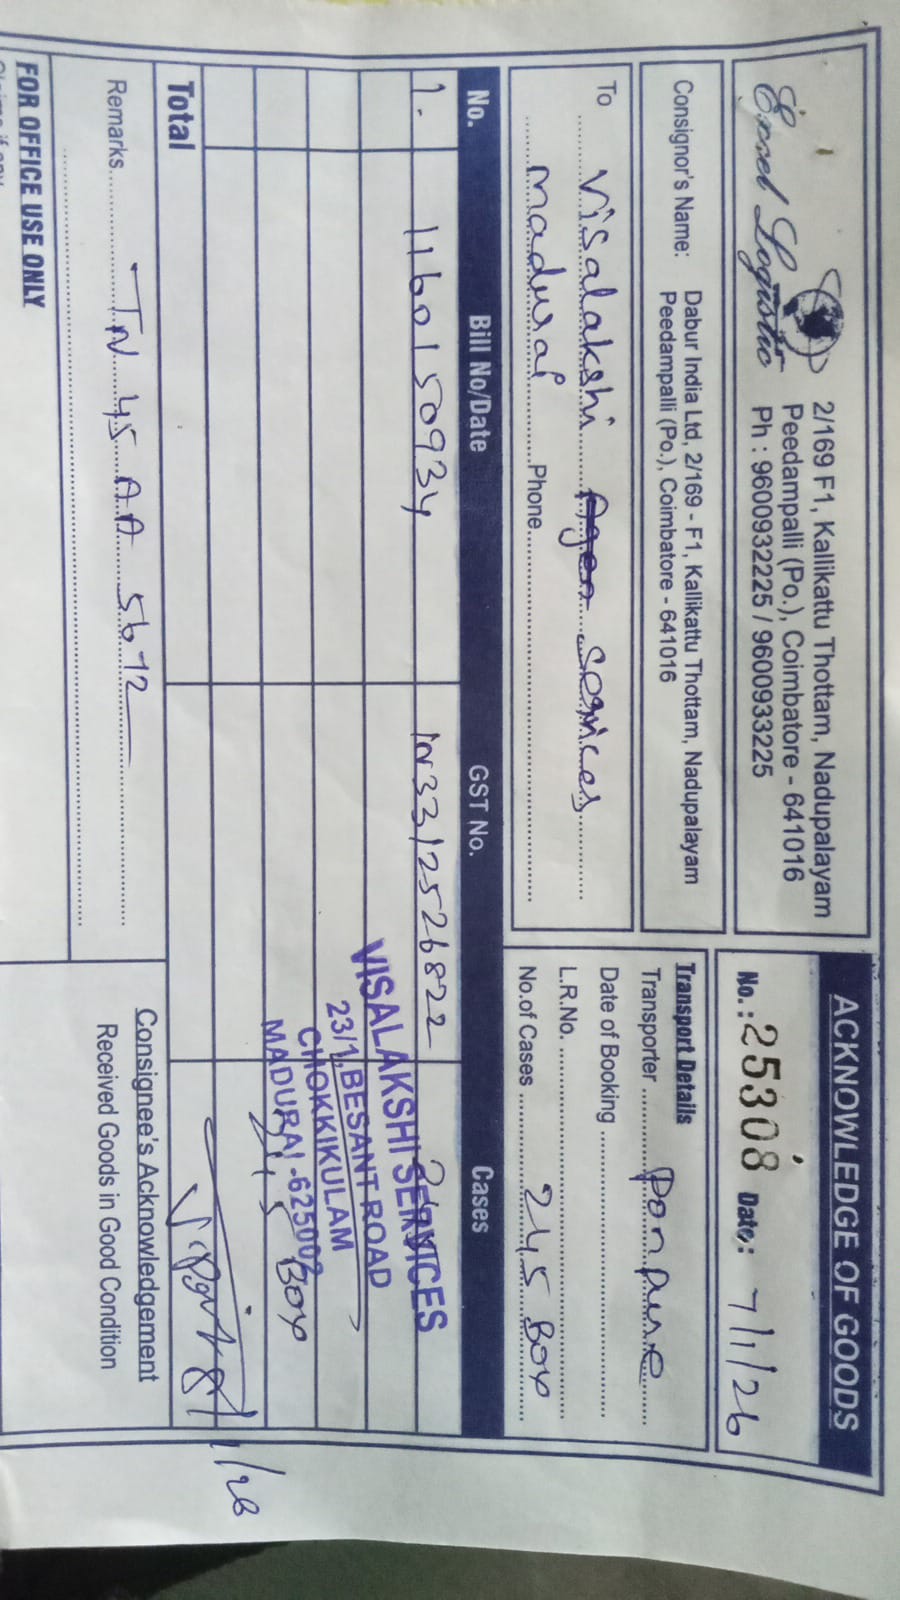 Excel Logistic
2/169 F1, Kallikattu Thottam, Nadupalayam
Peedampalli (Po.), Coimbatore - 641016
Ph : 9600932225 / 9600933225
ACKNOWLEDGE OF GOODS
No.: 25308 Date: 7/1/26
Consignor's Name: Dabur India Ltd, 2/169 - F1, Kallikattu Thottam, Nadupalayam
Peedampalli (Po.), Coimbatore - 641016
To Visalakshi Agen Services
Madurai Phone
Transport Details
Transporter
Date of Booking
L.R.No.
No.of Cases 245 Box
No. Bill No/Date GST No. Cases
1. 1160150934 IN3312526822
VISALAKSHI SERVICES
23/1, BESANT ROAD
CHOKKIKULAM
MADURAI - 625002
245 Box
Total
Remarks TN 45 AA 5672
Consignee's Acknowledgement
Received Goods in Good Condition
FOR OFFICE USE ONLY